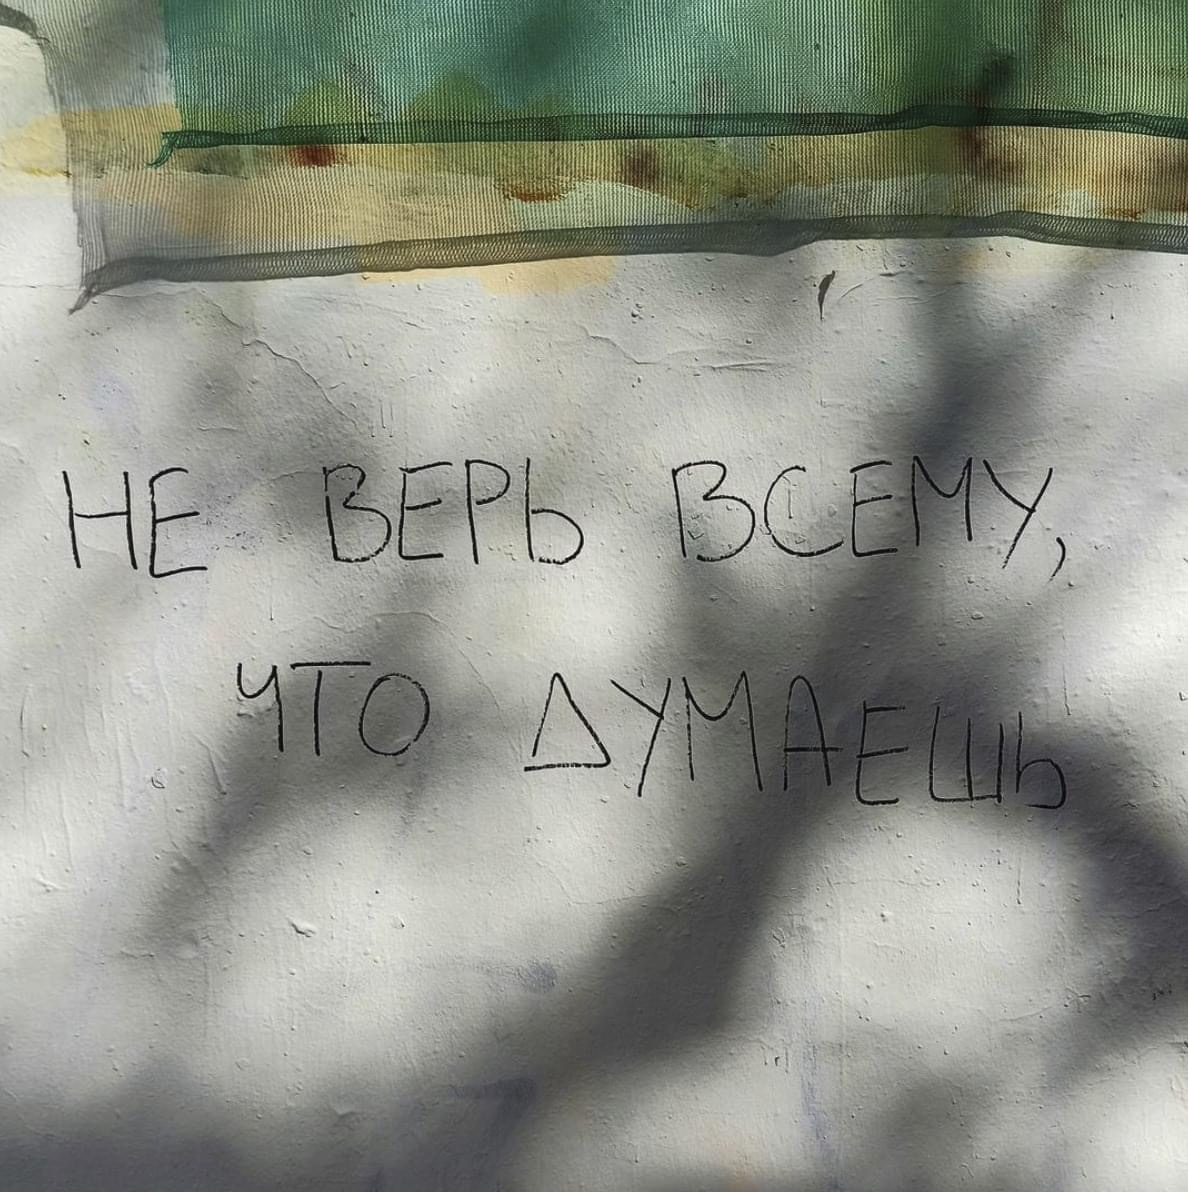 НЕ ВЕРЬ ВСЕМУ,
ЧТО ДУМАЕШЬ